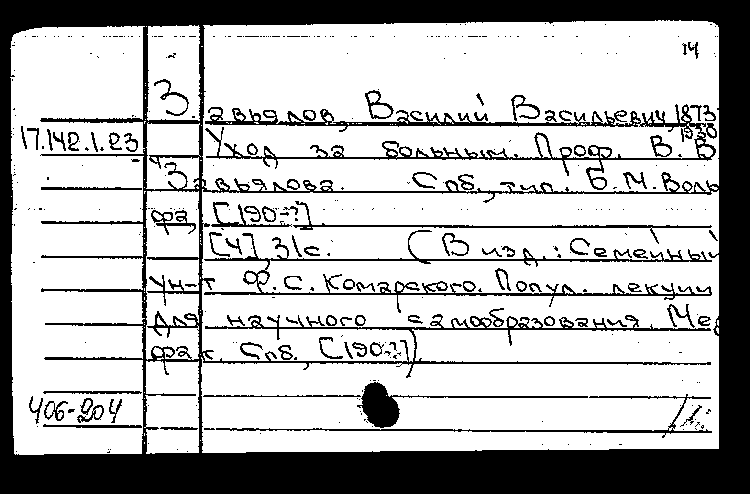 14
Завьялов, Василий Васильевич, 1873-
1930
17.142.1.23 Уход за больным. Проф. В. В
Завьялова. Спб., тип. Б. М. Воль
фа, [190-?].
[4], 31с. (В изд.: Семейный
ун-т Ф. С. Комарского. Попул. лекции
для научного самообразования. Мед
фак. Спб., [190-?])
406-204